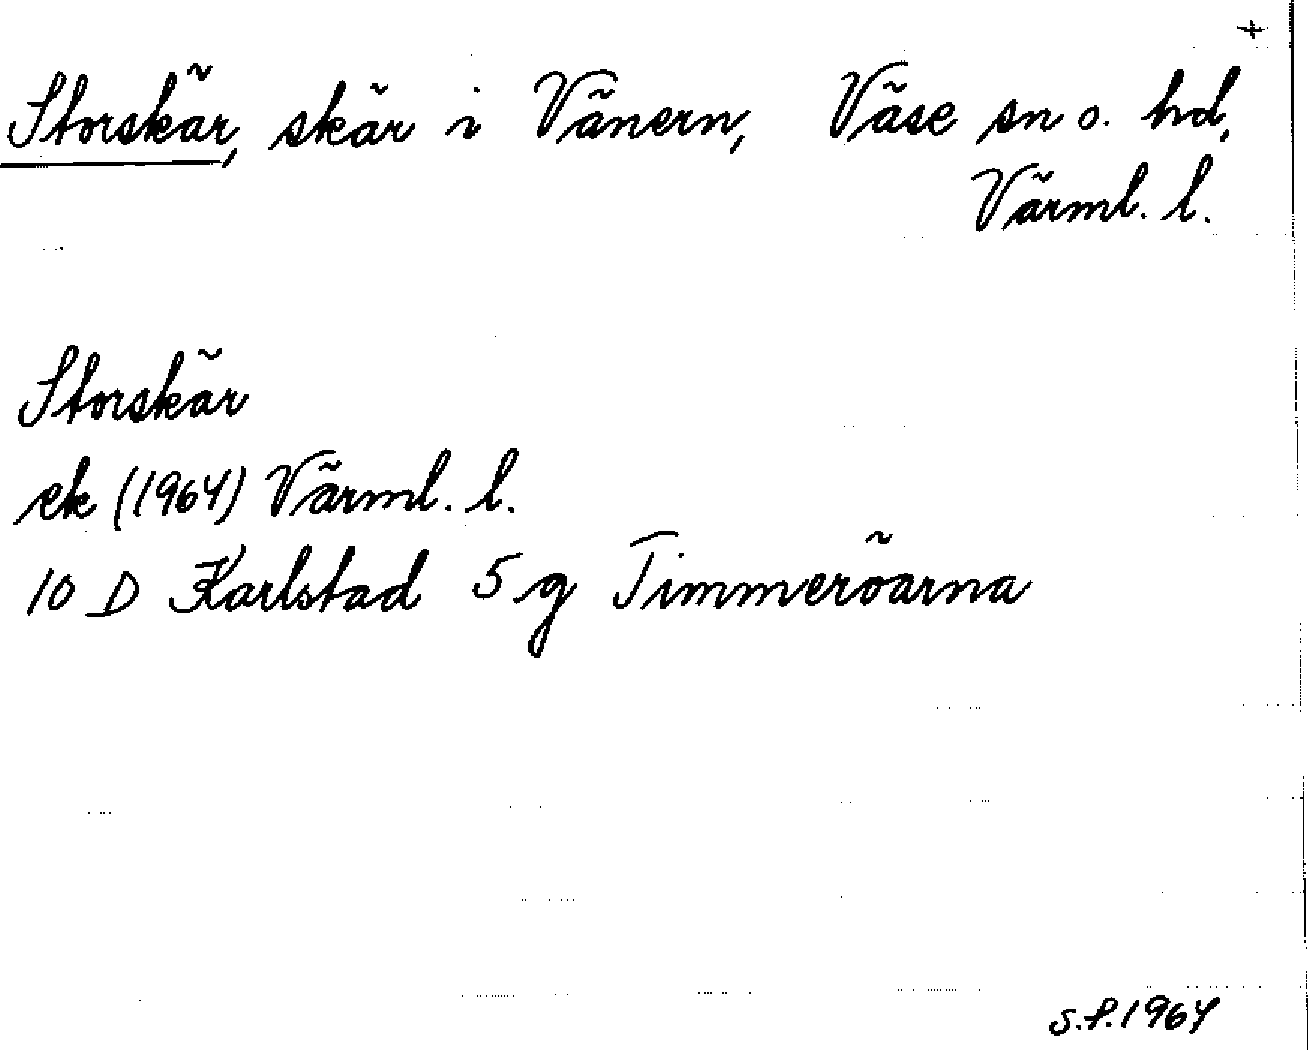 +
Storskär, skär i Vänern, Väse sn o. hd,
Värml. l.
Storskär
ek (1964) Värml. l.
10 D Karlstad 5 g Timmeröarna
S.P. 1964